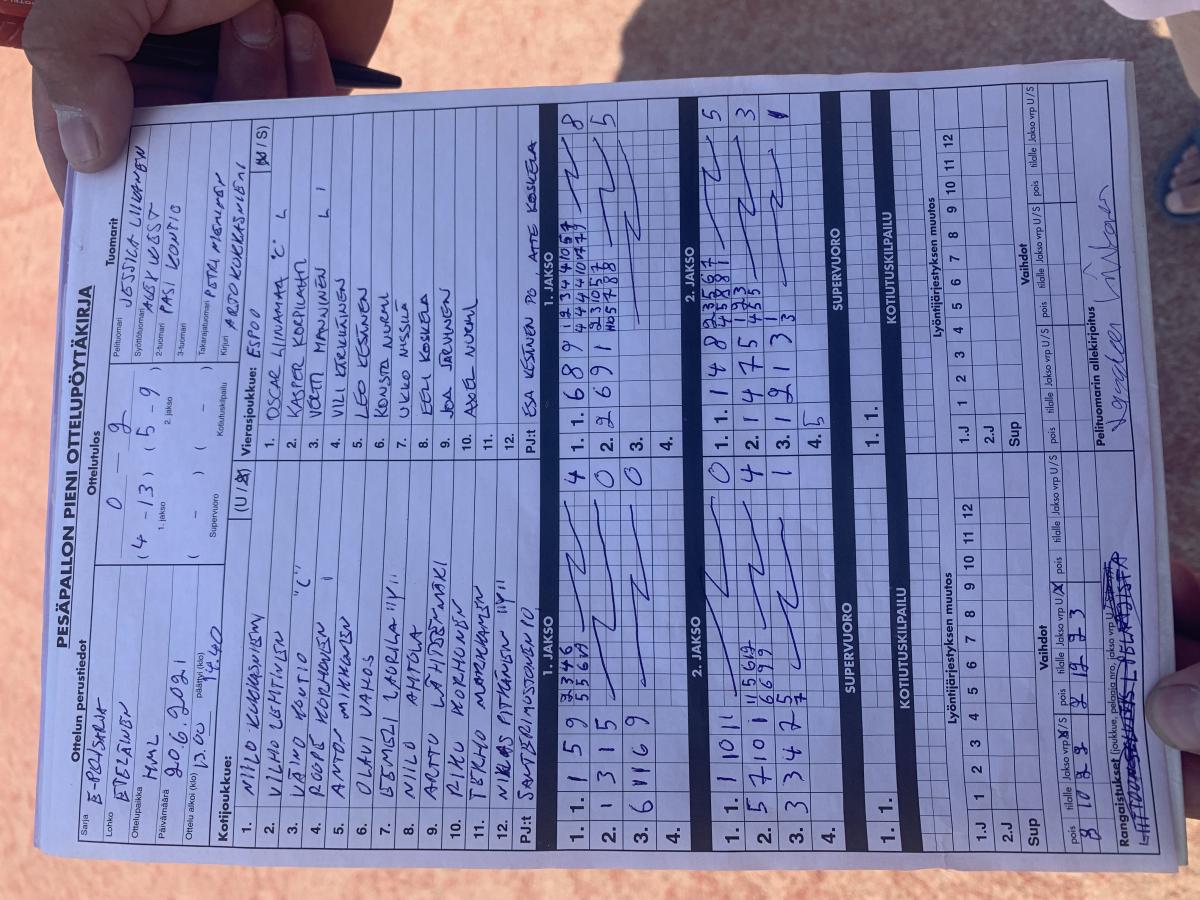 PESÄPALLON PIENI OTTELUPÖYTÄKIRJA
Ottelun perustiedot
Sarja E-POJSARJA
Lohko ETELÄINEN
Ottelupaikka
Päivämäärä 20.6.2021
Ottelu alkoi (klo) 13.00 päättyi (klo) 14.40
Ottelutulos
0 – 2
( 4 - 13 ) ( 5 - 9 )
1. jakso 2. jakso
( – ) ( – )
Supervuoro Kotiutuskilpailu
Tuomarit
Pelituomari JESSICA LIIKANEN
Syöttötuomari
2-tuomari PASI KONTIO
3-tuomari
Takarajatuomari PETRI
Kirjuri ARTO KUKKASNIEMI
Kotijoukkue: (U / S)
1. NIILO KUKKASNIEMI
2. VILHO LEHTINEN
3. VÄINÖ KOUTIO "C"
4. ROOPE KORHONEN I
5. ANTON MIKKONEN
6. OLAVI VAHOS
7. EEMELI LAURILA "Y"
8. NIILO AHTOLA
9. ARTTU LÄHTEENMÄKI
10. RIKU KORHONEN
11. TERHO
12. NIKLAS PITKÄNEN "Y"
PJ:t SANTERI AUSTONEN PJ
Vierasjoukkue: ESPOO (U / S)
1. OSCAR LIINAMAA "C" L
2. KASPER KORPILAHTI
3. VERTTI MANNINEN L I
4. VILI KERKKÄINEN
5. LEO KESÄNEN
6. KONSTA NURMI
7. UKKO NISSILÄ
8. EELI KOSKELA
9. JOA JÄRVINEN
10. AXEL NURMI
11.
12.
PJ:t ESA KESÄNEN PJ, ATTE KOSKELA
1. JAKSO 1. JAKSO
1. 1. 1 5 9 2 3 4 6 4
5 5 6 12
2. 1 3 1 5 0
3. 6 11 6 9 0
4.
1. 1. 6 8 9 1 2 3 4 4 10 5 7 8
4 4 4 4 10 4 7 9
2. 2 6 9 1 2 3 10 5 7 5
10 5 7 8 8
3.
4.
2. JAKSO 2. JAKSO
1. 1. 1 10 11 0
2. 5 7 10 1 11 5 6 12 4
6 6 9 9
3. 3 3 4 7 2 5 1
7
4.
1. 1. 1 4 8 2 3 5 6 7 5
4 5 8 8 1
2. 1 4 7 5 1 2 3 3
4 5 5
3. 1 2 1 3 1 1
3
4. 5
SUPERVUORO SUPERVUORO
1. 1. 1. 1.
KOTIUTUSKILPAILU KOTIUTUSKILPAILU
Lyöntijärjestyksen muutos Lyöntijärjestyksen muutos
1.J 1 2 3 4 5 6 7 8 9 10 11 12
2.J
Sup
1.J 1 2 3 4 5 6 7 8 9 10 11 12
2.J
Sup
Vaihdot Vaihdot
pois tilalle Jakso vrp U/S pois tilalle Jakso vrp U/S pois tilalle Jakso vrp U/S
8 10 2 2 2 12 2 3
pois tilalle Jakso vrp U/S pois tilalle Jakso vrp U/S pois tilalle Jakso vrp U/S
Rangaistukset (joukkue, pelaaja nro, jakso vrp U/S
Pelituomarin allekirjoitus
Jessica Liikanen